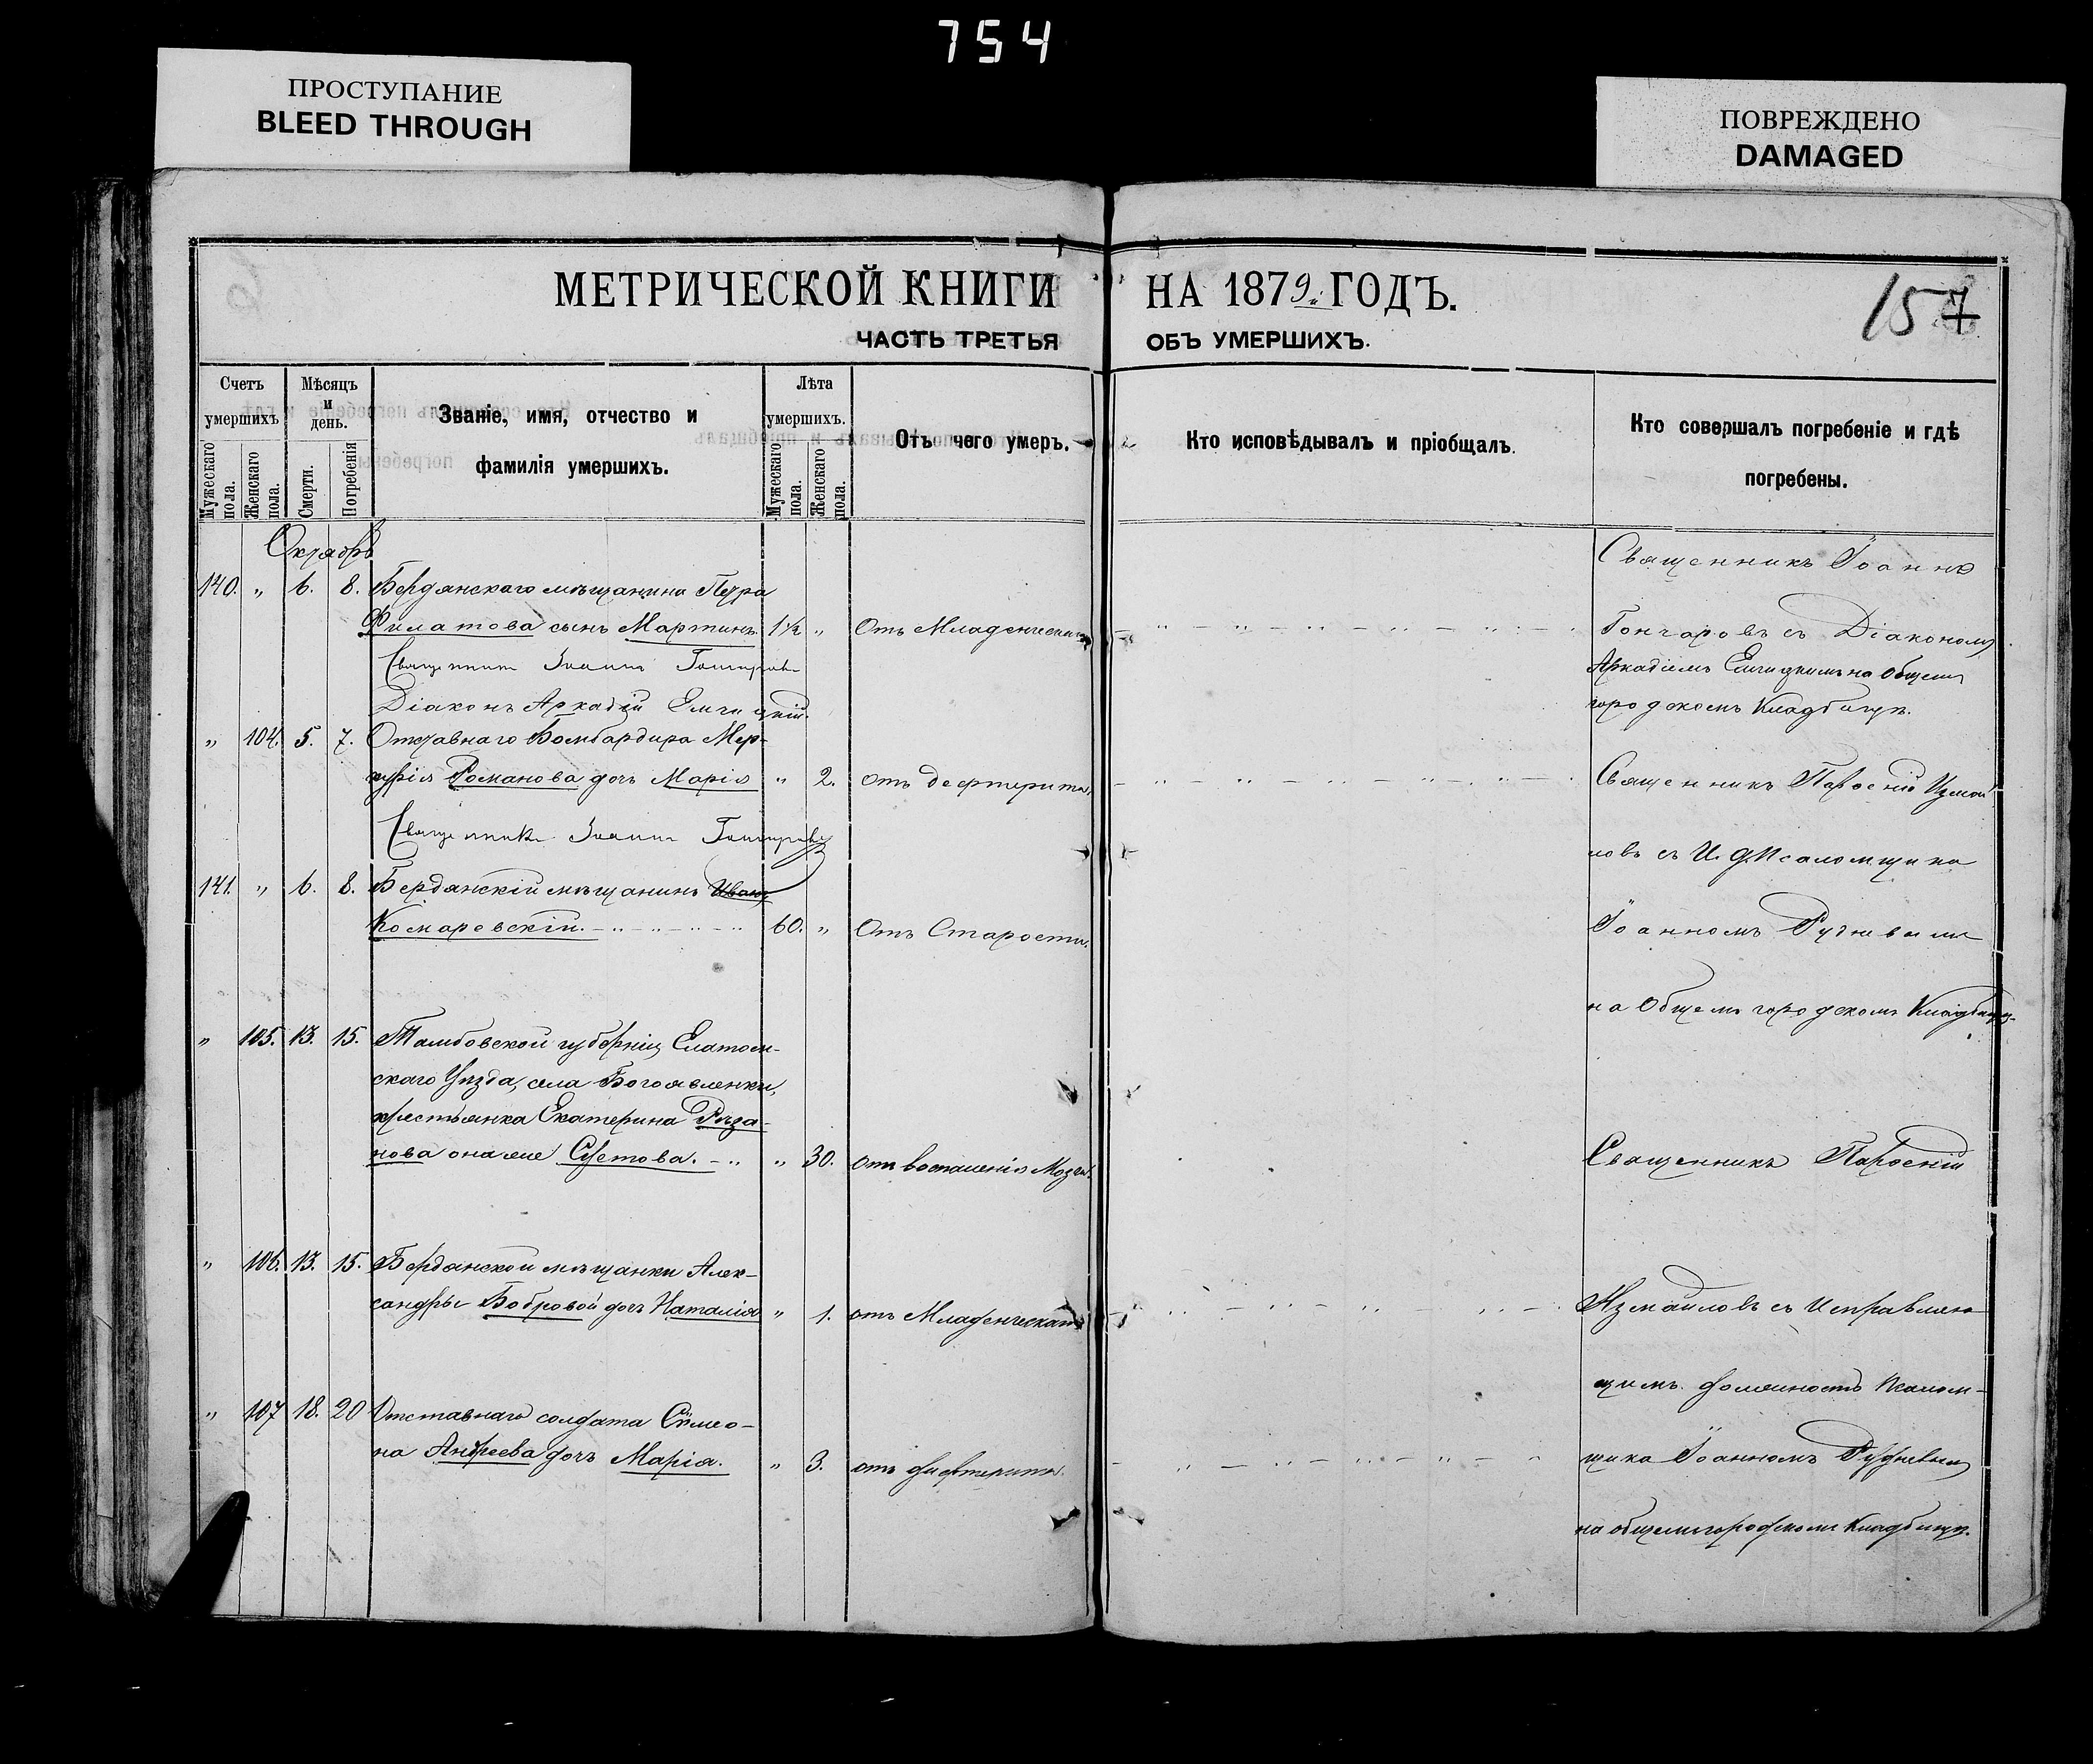 754
ПРОСТУПАНИЕ
BLEED THROUGH
ПОВРЕЖДЕНО
DAMAGED
МЕТРИЧЕСКОЙ КНИГИ НА 1879 ГОДЪ.
157
ЧАСТЬ ТРЕТЬЯ ОБЪ УМЕРШИХЪ.
Счетъ умершихъ
Мужескаго пола.
Женскаго пола.
Мѣсяцъ и день.
Смерти.
Погребенія
Званіе, имя, отчество и фамилія умершихъ.
Лѣта умершихъ.
Мужескаго пола.
Женскаго пола.
Отъ чего умеръ.
Кто исповѣдывалъ и пріобщалъ.
Кто совершалъ погребеніе и гдѣ погребены.
Октябрь
140. " 6. 8. Бердянскаго мѣщанина Петра
Филатова сынъ Мартинъ 1½ " Отъ Младенческаго
Священникъ Іоаннъ Гончаровъ
Діаконъ Аркадій
" 104. 5. 7. Отставнаго Бомбардира Мер-
курія Романова дочь Марія " 2. отъ дефтерита.
Священникъ Іоаннъ Гончаровъ
141. " 6. 8. Бердянскій мѣщанинъ Иванъ
Комаревскій. 60. " Отъ Старости.
" 105. 13. 15. Тамбовской губерніи Елатом-
скаго Уѣзда, села Богоявленки,
крестьянка Екатерина Ряза-
нова она же " 30. отъ воспаленія Мозга.
" 106. 13. 15. Бердянской мѣщанки Алек-
сандры Бобровой дочь Наталія " 1. отъ Младенческаго
" 107 18. 20 Отставнаго солдата Сѵмео-
на Андреева дочь Марія. " 3. отъ дифтерита.
Священникъ Іоаннъ
Гончаровъ съ Діакономъ
Аркадіемъ на Общемъ
городскомъ Кладбищѣ.
Священникъ Парѳеній Измаи
ловъ съ И. Д. Псаломщика
Іоанномъ Рудневымъ
на Общемъ городскомъ Кладбищѣ.
Священникъ Парѳеній
Измаиловъ съ Исправляю
щимъ должность Псалом-
щика Іоанномъ Рудневымъ
на общемъ городскомъ Кладбищѣ.